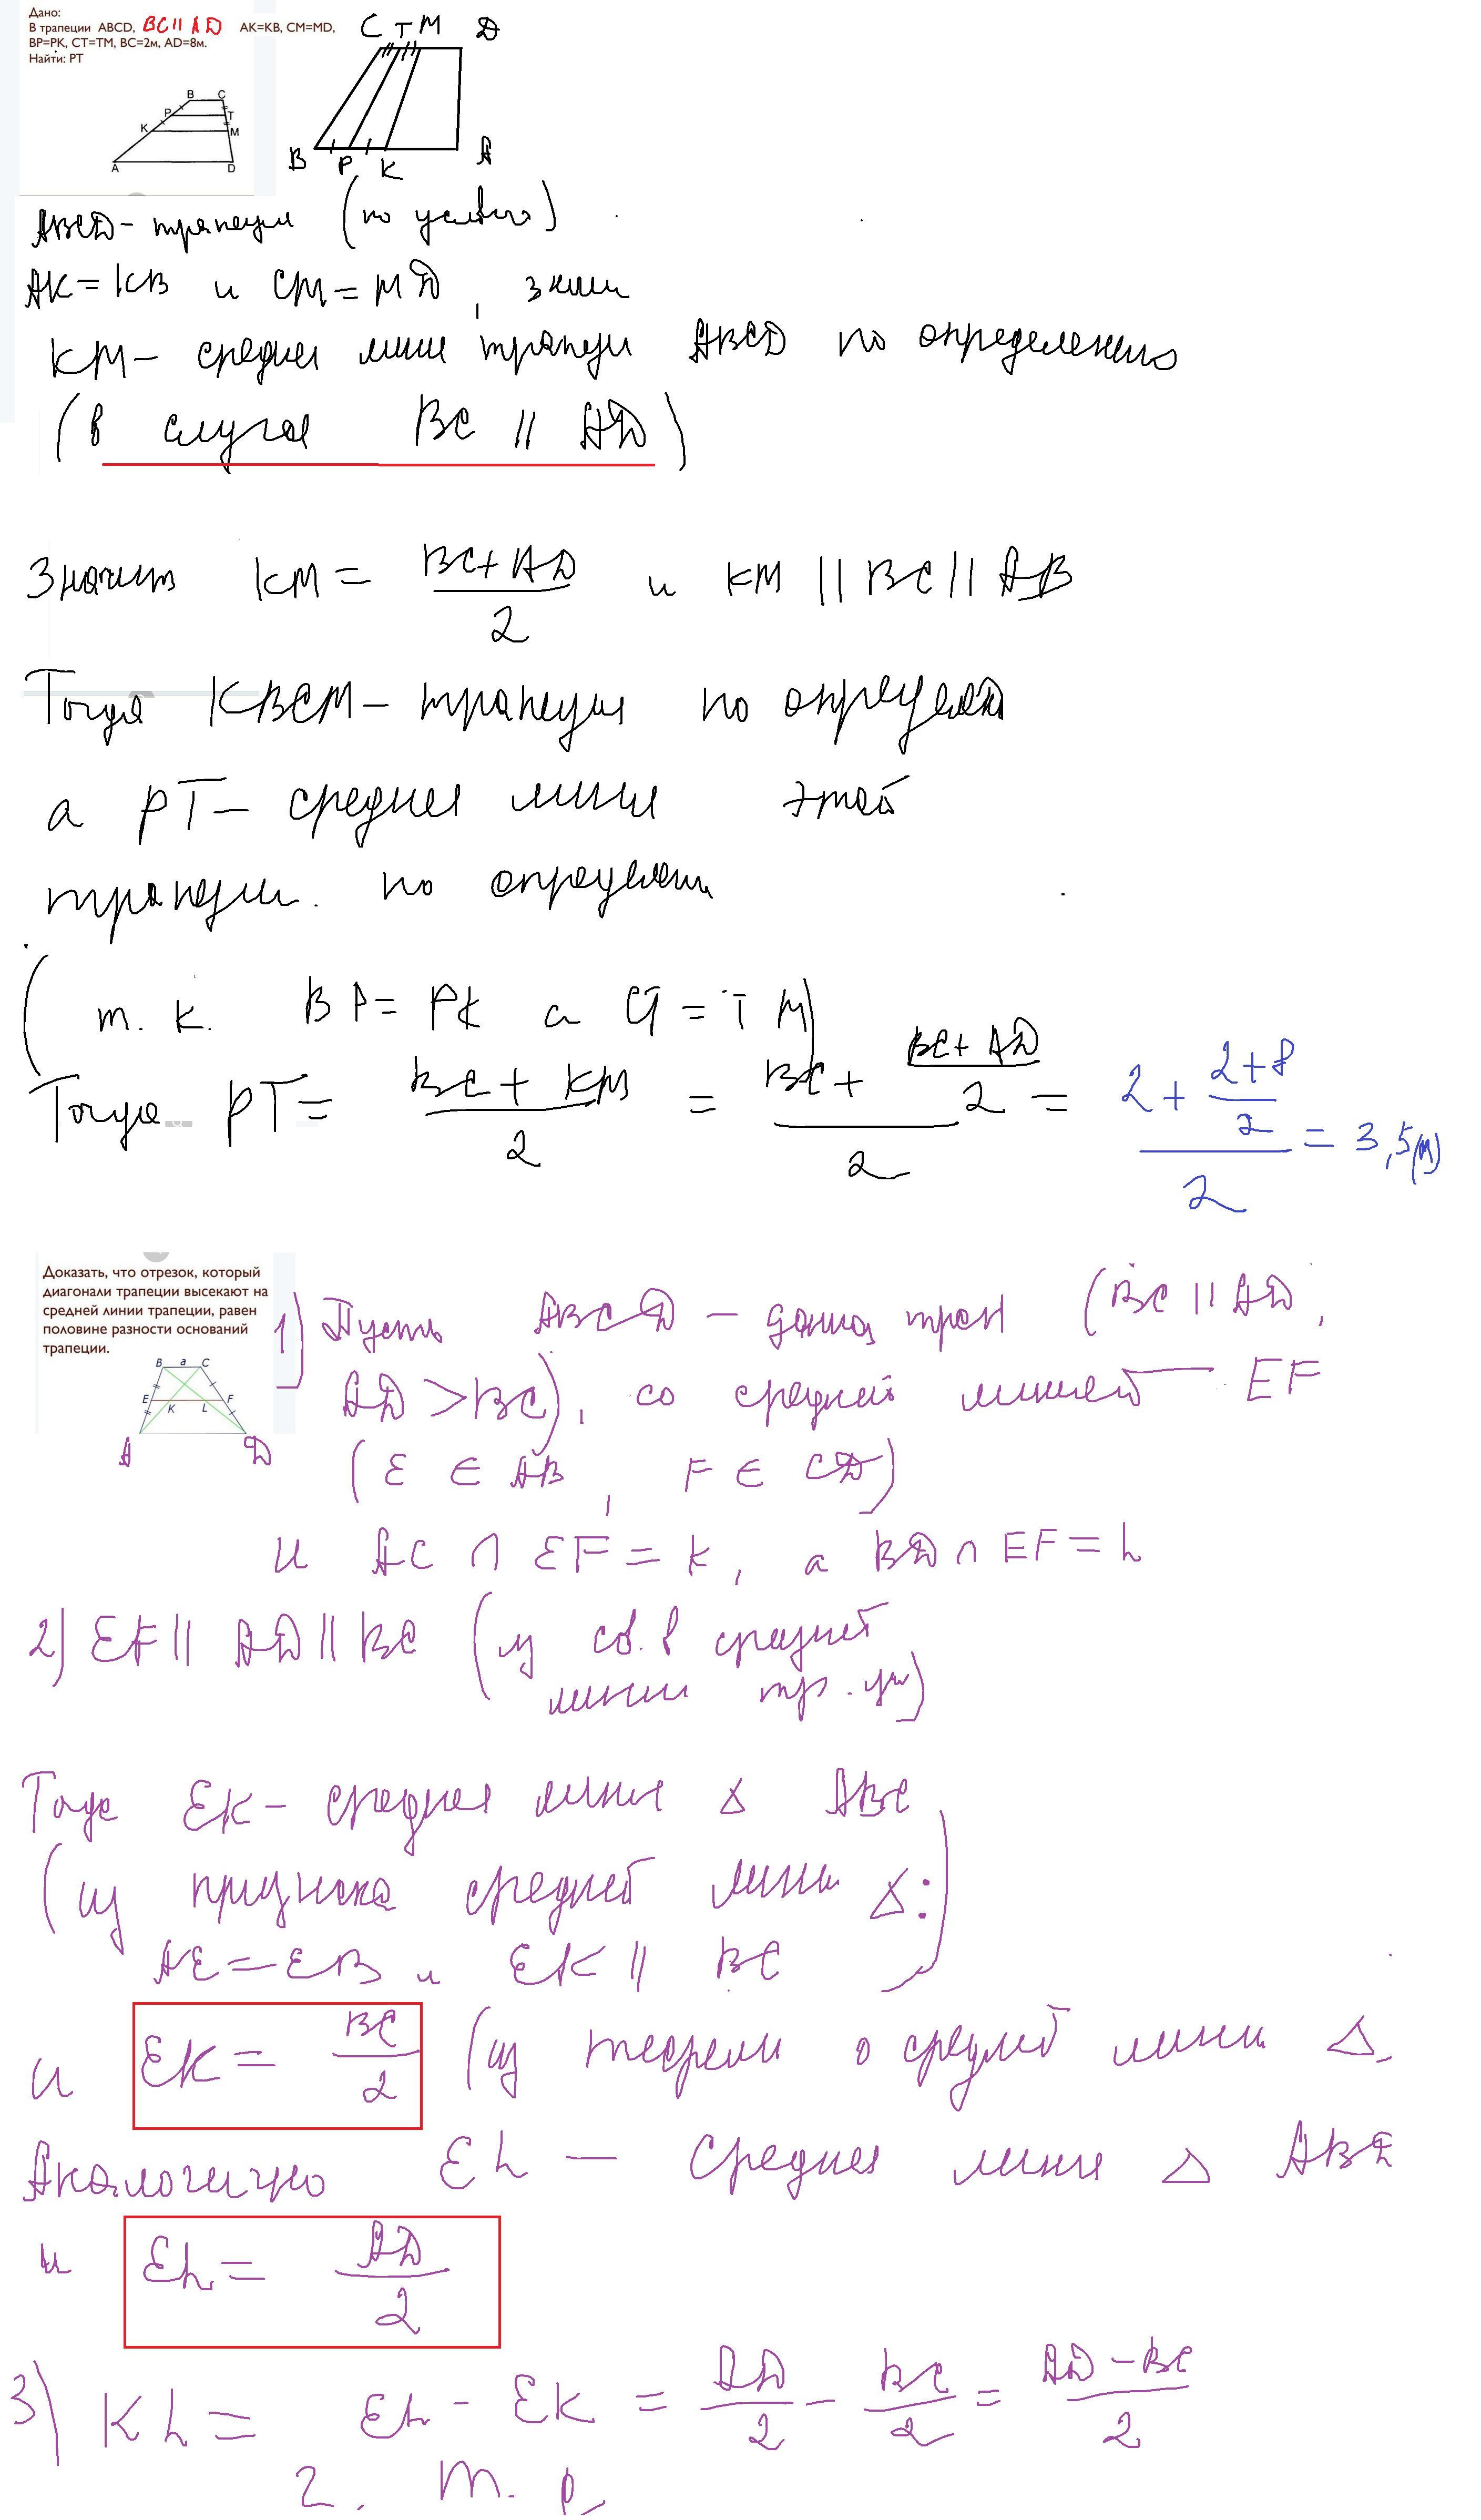 Дано:
В трапеции ABCD, BC || AD AK=KB, CM=MD,
BP=PK, CT=TM, BC=2м, AD=8м.
Найти: PT
C T M D
B P K A
B C
P T
K M
A D
ABCD - трапеции (по условию)
AK = KB и CM = MD, значи
KM - средней лини трапеци ABCD по определению
(в случае BC || AD)
Значит KM = (BC + AD)/2 и KM || BC || AB
Тогда KBCM - трапеция по определен
а PT - средняя линия этой
трапеции. по определени
(т.к. BP = PK а CT = TM)
Тогда PT = (BC + KM)/2 = (BC + (BC + AD)/2)/2 = (2 + (2+8)/2)/2 = 3,5(м)
Доказать, что отрезок, который
диагонали трапеции высекают на
средней линии трапеции, равен
половине разности оснований
трапеции.
B a C
E F
K L
A D
1) Пусть ABCD - данная трап (BC || AD,
AD > BC), со средней линией EF
(E ∈ AB, F ∈ CD)
и AC ∩ EF = K, а BD ∩ EF = L
2) EF || AD || BC (из св. в средней
линии тр.)
Тогда EK - средняя линия △ ABC
(из признака средней линии △:
AE = EB и EK || BC)
и EK = BC/2 (из теоремы о средней линии △
Аналогично EL - средняя линия △ ABD
и EL = AD/2
3) KL = EL - EK = AD/2 - BC/2 = (AD - BC)/2